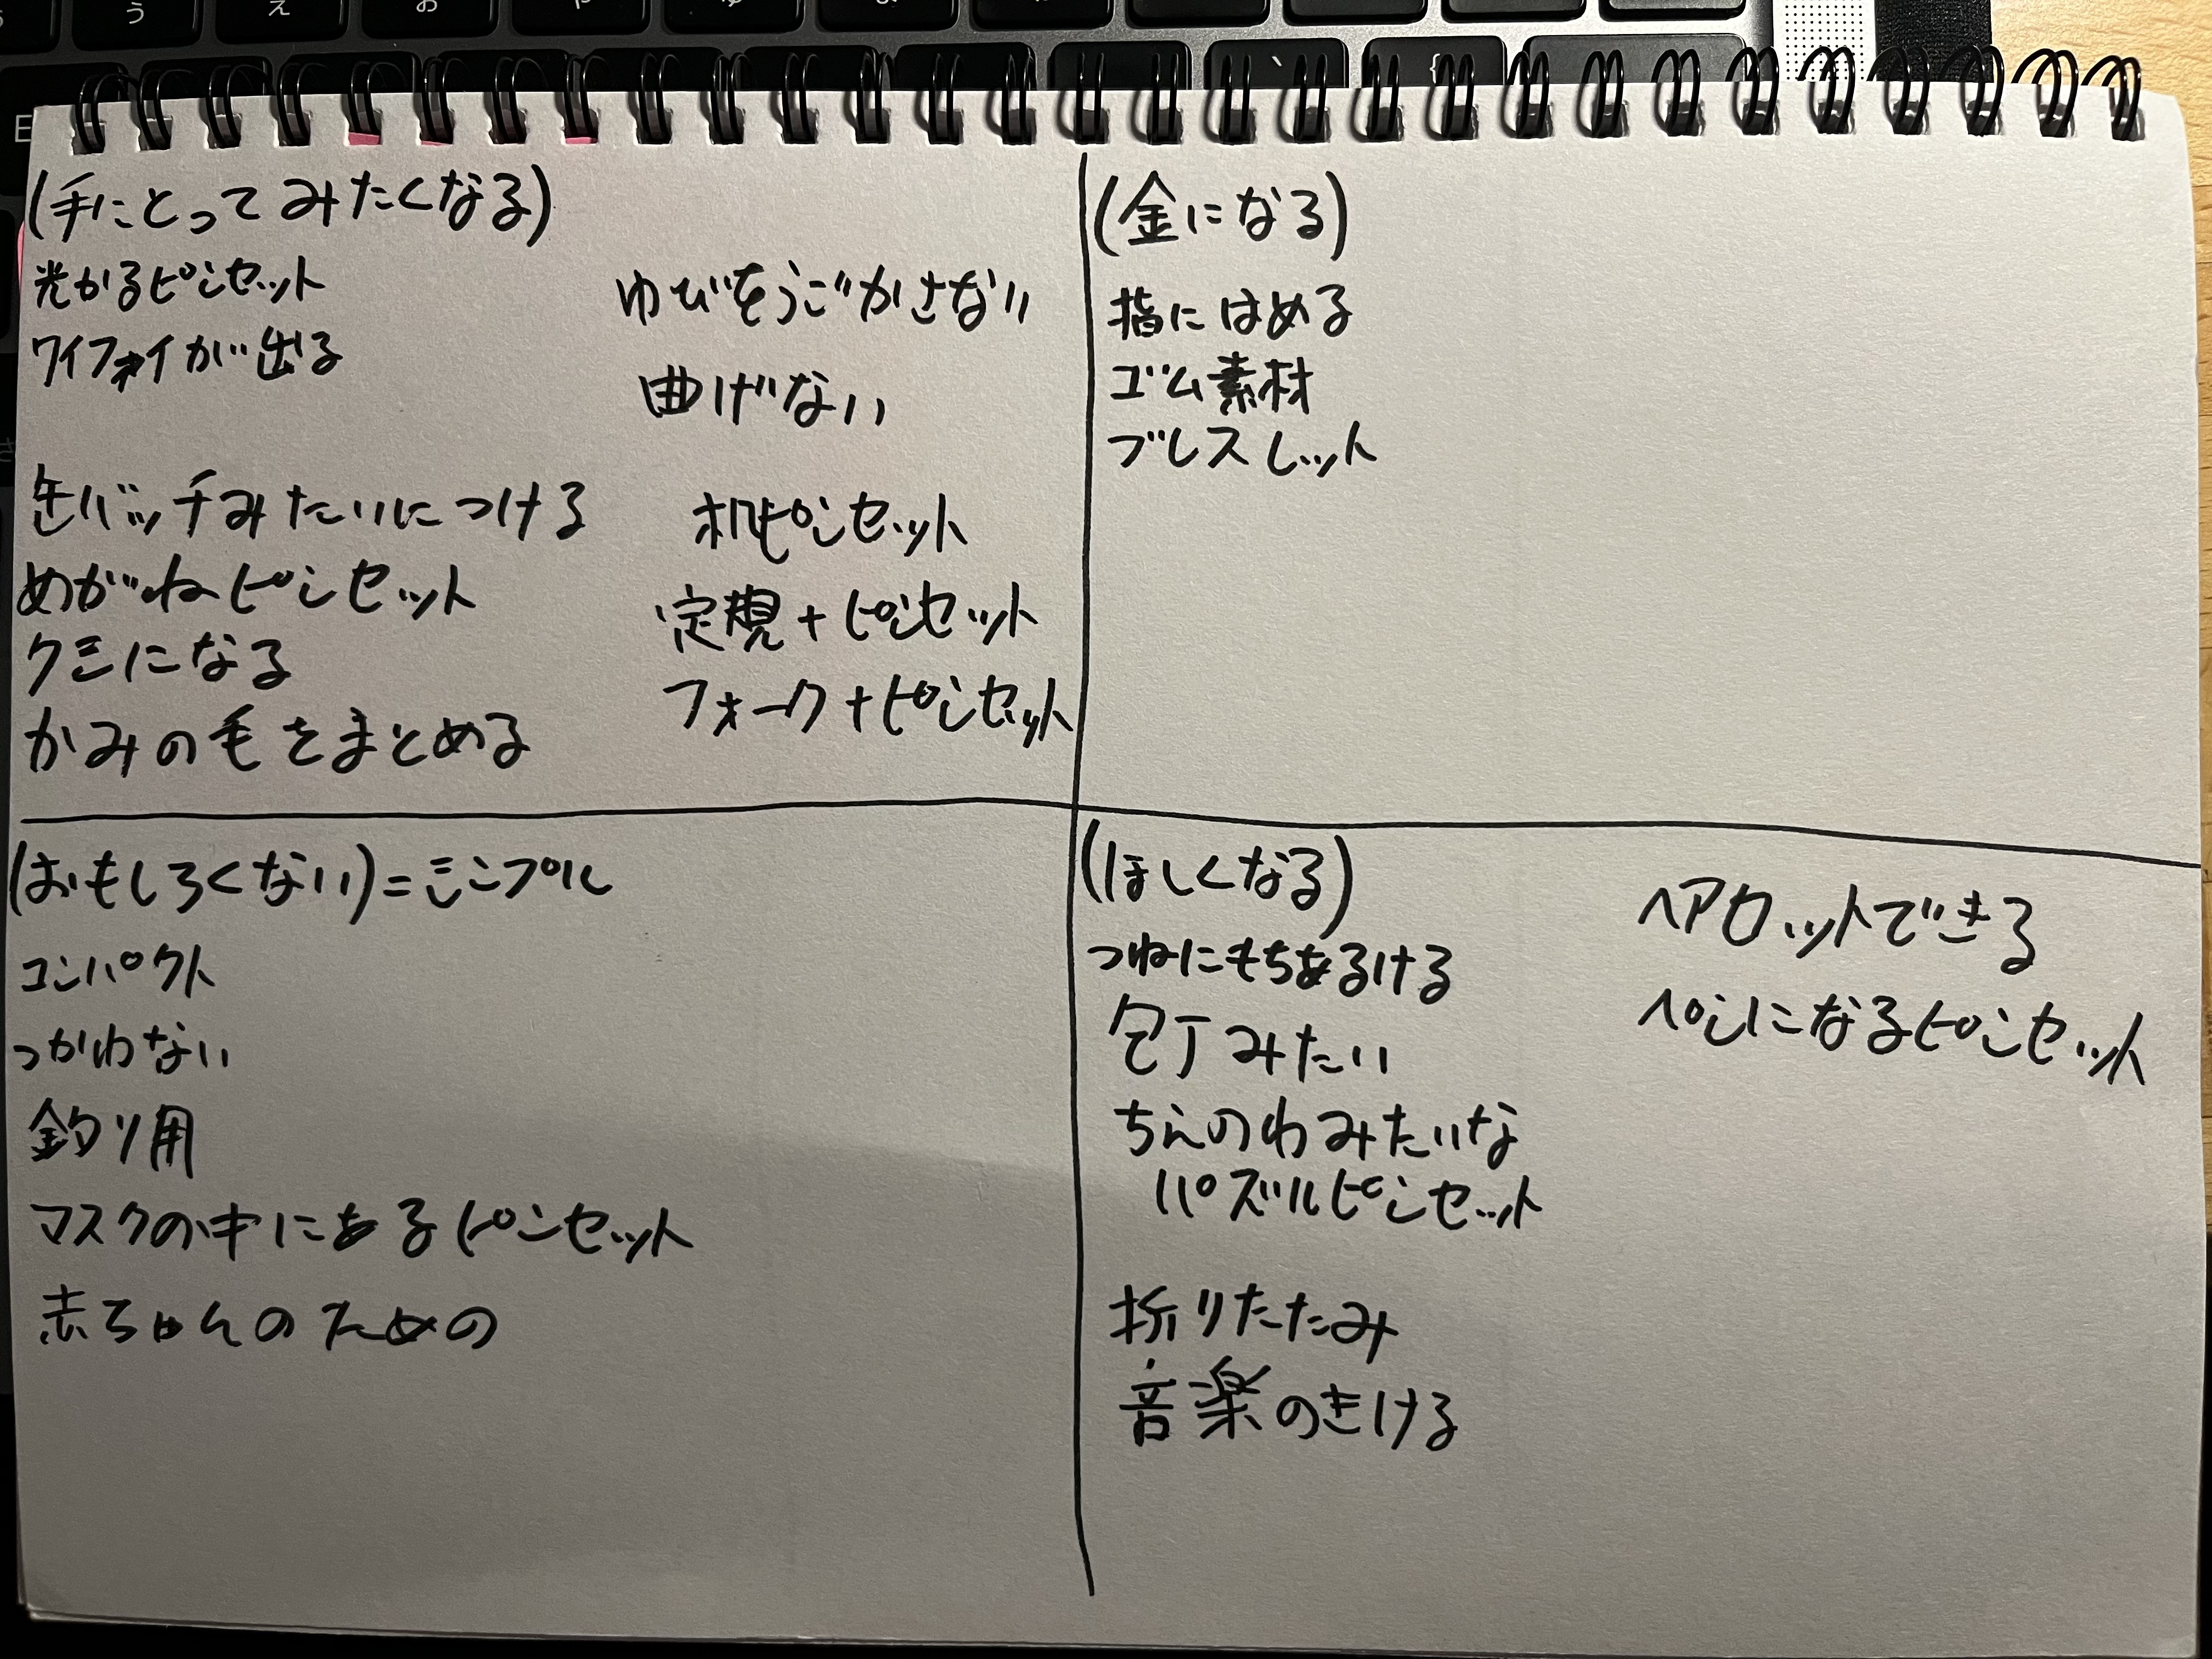 (手にとってみたくなる)
光かるピンセット
ワイファイが出る
缶バッチみたいにつける
めがねピンセット
クミになる
かみの毛をまとめる
ゆびをうごかさない
曲げない
机ピンセット
定規+ピンセット
フォーク+ピンセット
(金になる)
指にはめる
ゴム素材
ブレスレット
(おもしろくない)=シンプル
コンパクト
つかわない
釣り用
マスクの中にあるピンセット
赤ちゃんのための
(ほしくなる)
つねにもちあるける
包丁みたい
ちえのわみたいな
パズルピンセット
折りたたみ
音楽のきける
ヘアカットできる
ペンになるピンセット